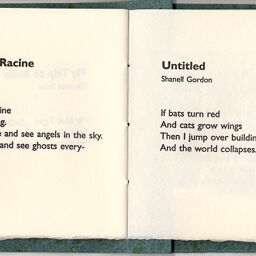 Racine
ine
g.
e and see angels in the sky.
and see ghosts every-
Untitled
Shanell Gordon
If bats turn red
And cats grow wings
Then I jump over building
And the world collapses.